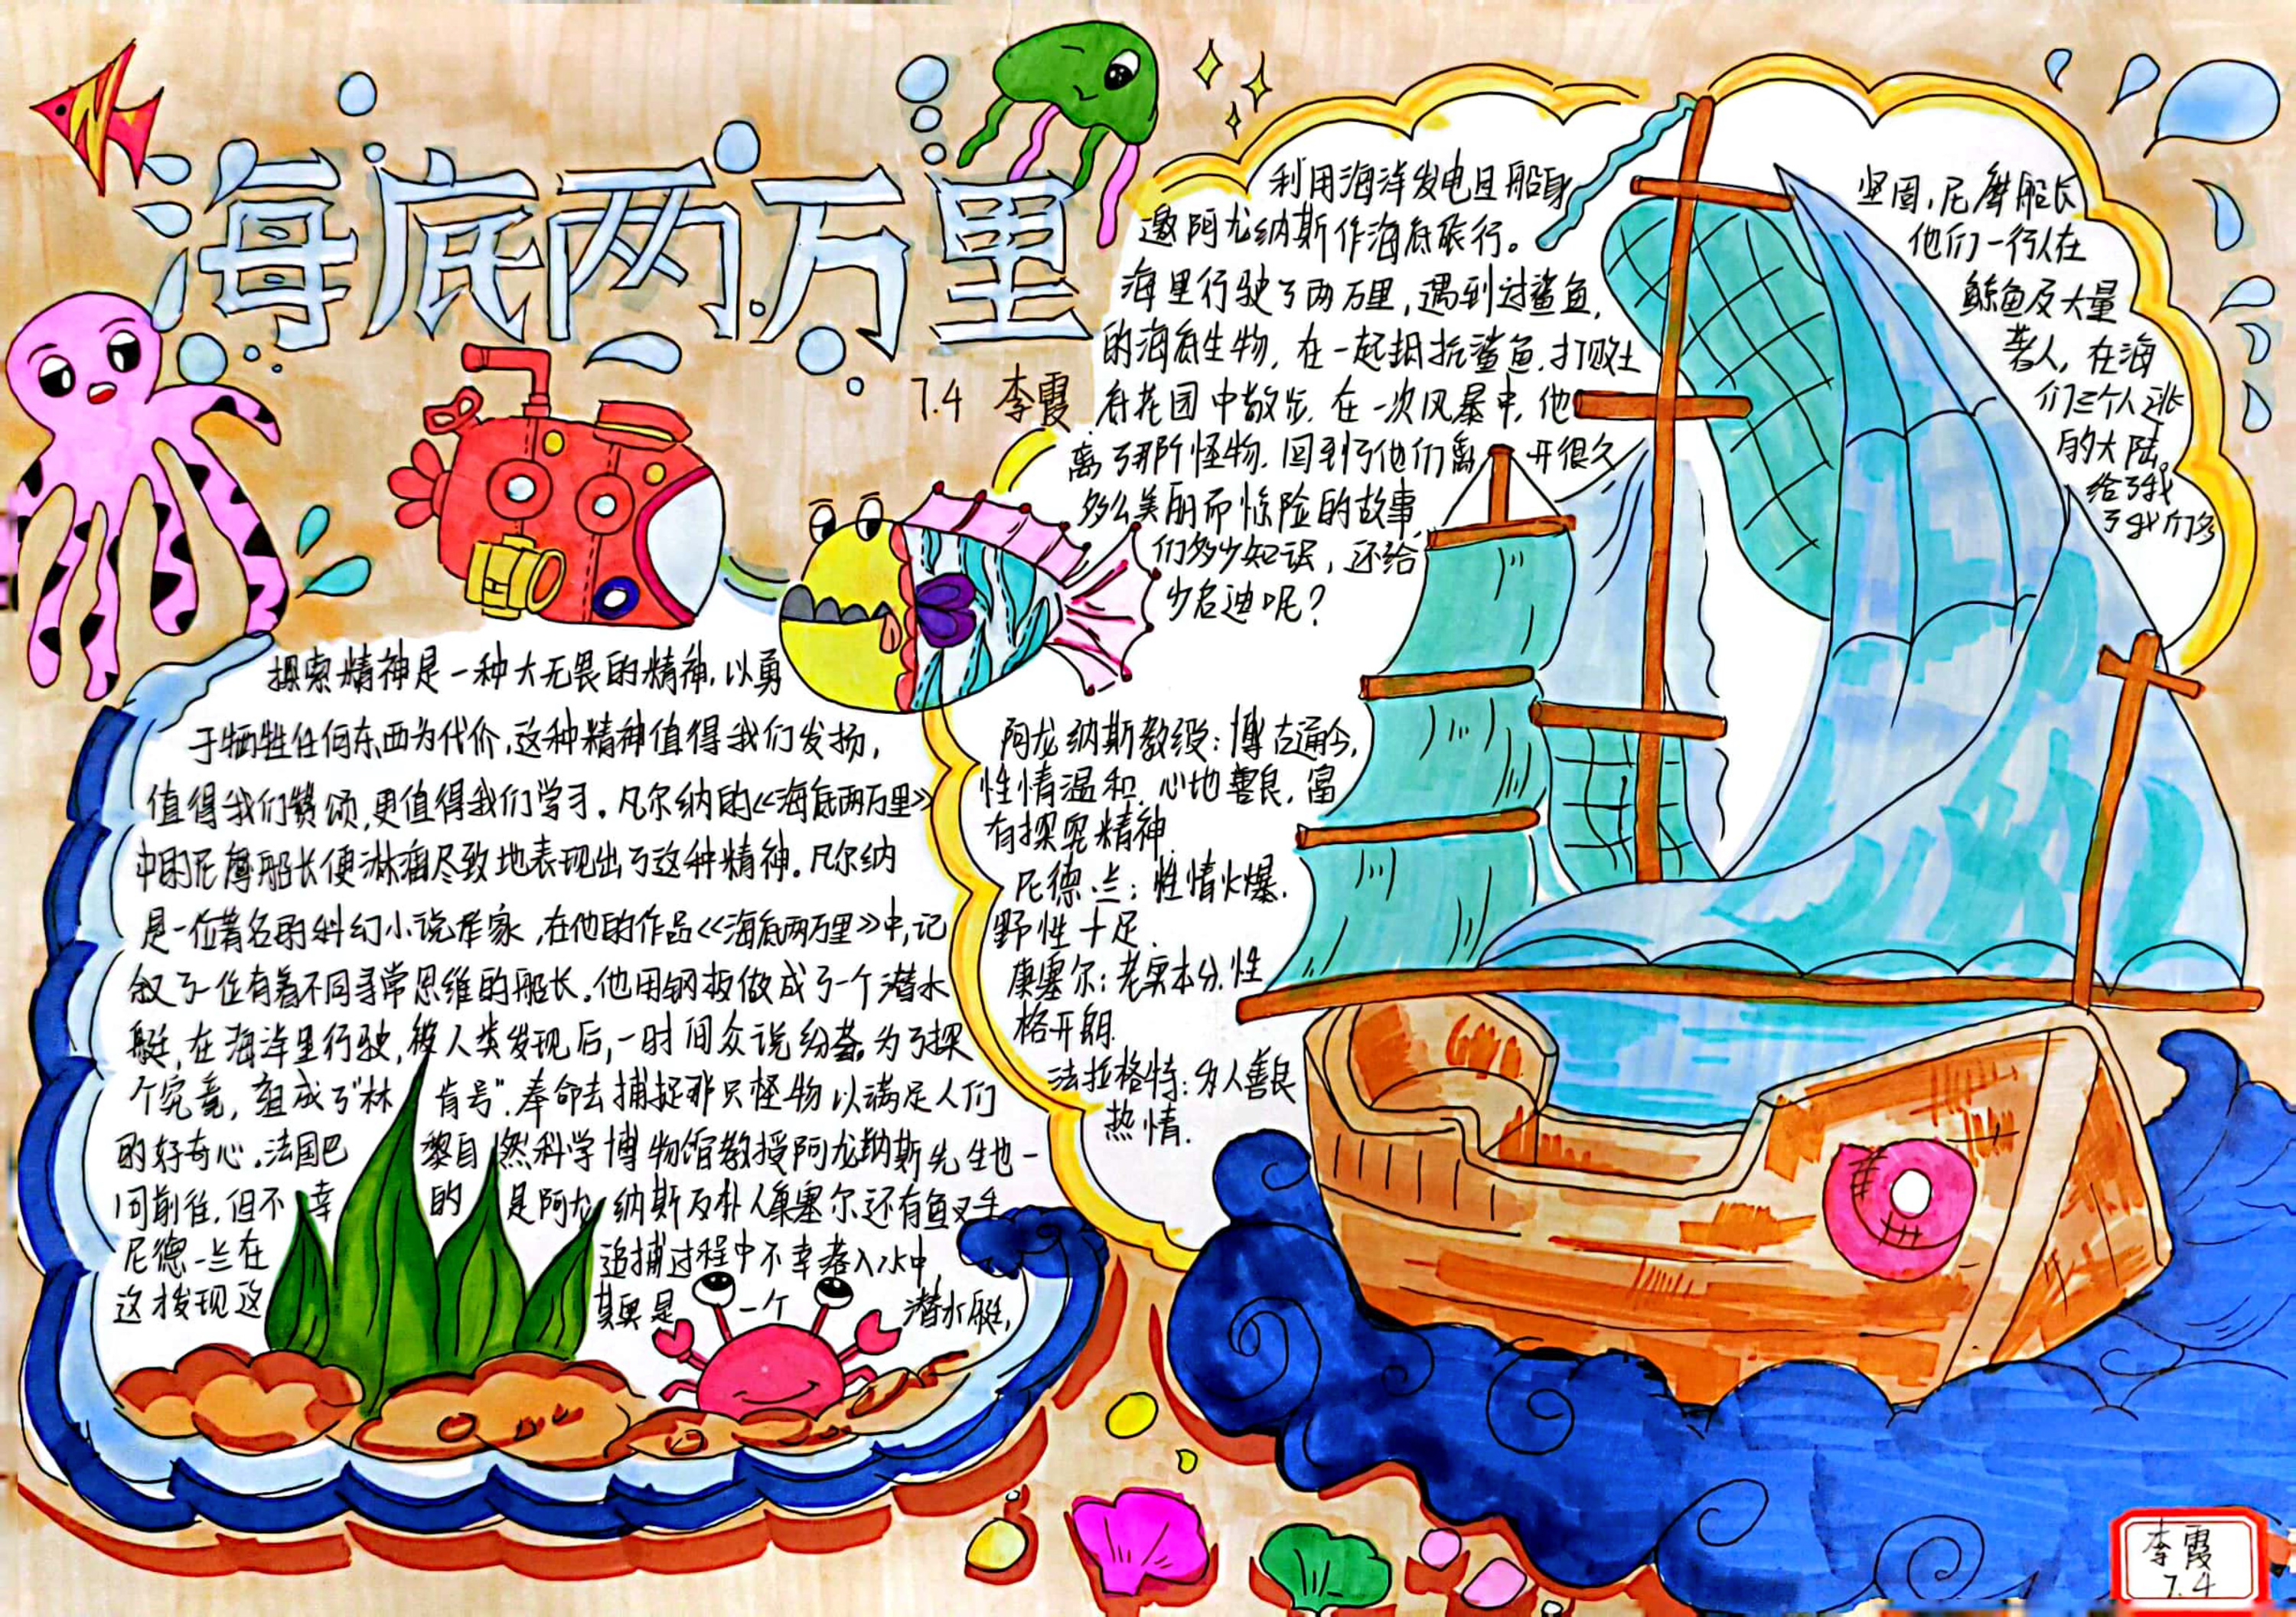 海底两万里
7.4 李霞
探索精神是一种大无畏的精神,以勇
于牺牲任何东西为代价,这种精神值得我们发扬,
值得我们赞颂,更值得我们学习。凡尔纳的《海底两万里》
中的尼摩船长便淋漓尽致地表现出了这种精神。凡尔纳
是一位著名的科幻小说作家,在他的作品《海底两万里》中,记
叙了一位有着不同寻常思维的船长。他用钢板做成了一个潜水
艇,在海洋里行驶,被人类发现后,一时间众说纷芸。为了探
个究竟,组成了"林肯号",奉命去捕捉那只怪物以满足人们
的好奇心。法国巴黎自然科学博物馆教授阿龙纳斯先生也一
同前往,但不幸的是阿龙纳斯及朴人康塞尔还有鱼叉手
尼德一兰在追捕过程中不幸落入水中,
这才发现这其奥是一个潜水艇,
利用海洋发电且船身坚固,尼摩船长
邀阿龙纳斯作海底旅行。他们一行人在
海里行驶了两万里,遇到过鲨鱼,鲸鱼及大量
的海底生物,在一起抵抗鲨鱼,打败土著人,在海
底花园中散步,在一次风暴中,他们三个人逃
离了那所怪物,回到了他们离开很久的大陆。
多么美丽而惊险的故事,给了我
们多少知识,还给了我们多
少启迪呢?
阿龙纳斯教授:博古通今,
性情温和,心地善良,富
有探究精神.
尼德.兰:性情火爆.
野性十足.
康塞尔:老实本分,性
格开朗.
法拉格特:为人善良
热情.
李霞
7.4